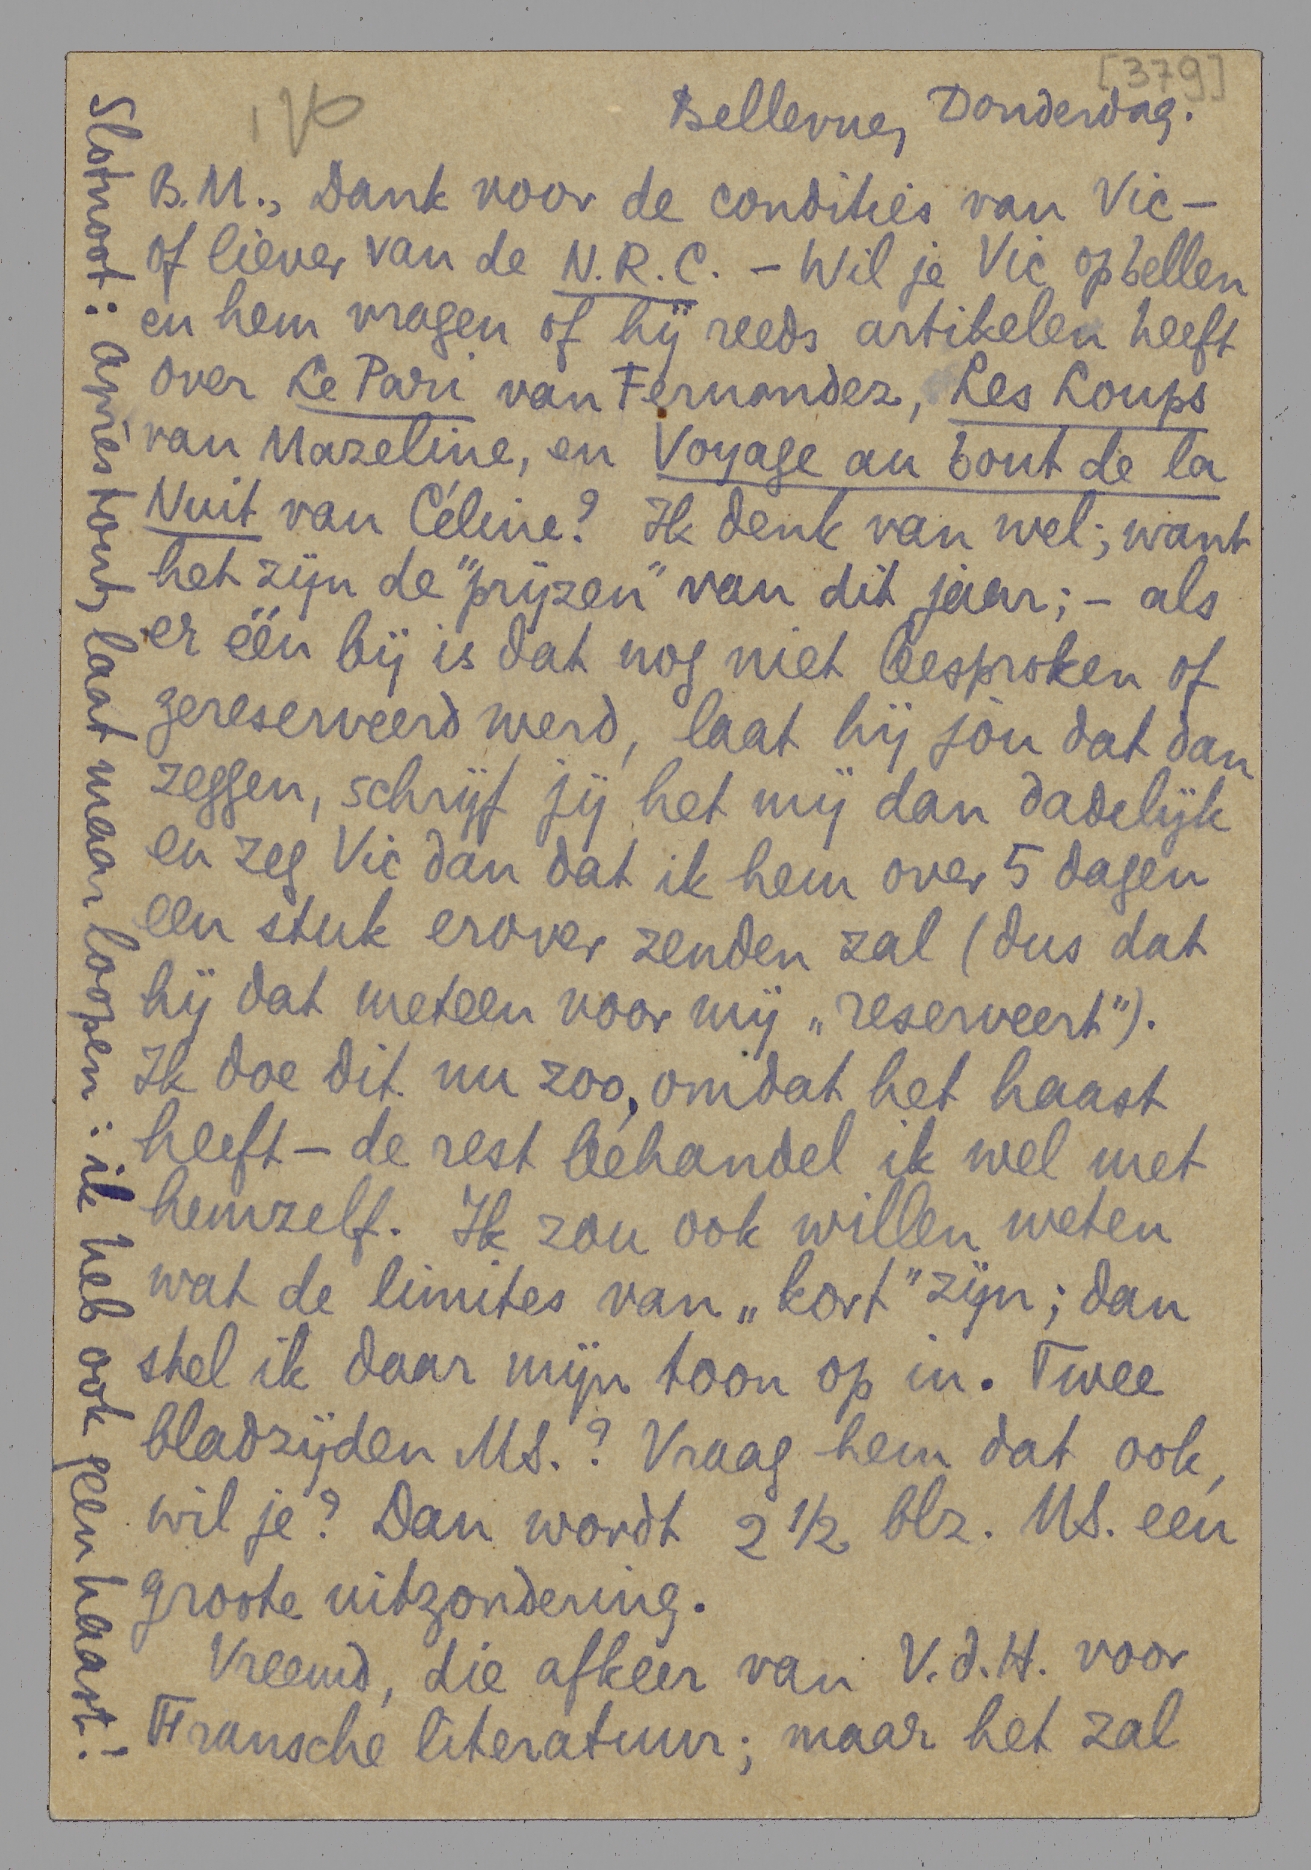 [379]
Bellevue, Donderdag.
B.M., Dank voor de condities van Vic –
of liever van de N.R.C. – Wil je Vic opbellen
en hem vragen of hij reeds artikelen heeft
over Le Pari van Fernandez, Les Loups
van Mazeline, en Voyage au bout de la
Nuit van Céline? Ik denk van wel; want
het zijn de "prijzen" van dit jaar; – als
er één bij is dat nog niet besproken of
gereserveerd werd, laat hij jòu dat dan
zeggen, schrijf jij het mij dan dadelijk
en zeg Vic dan dat ik hem over 5 dagen
een stuk erover zenden zal (dus dat
hij dat meteen voor mij „reserveert").
Ik doe dit nu zoo, omdat het haast
heeft – de rest behandel ik wel met
hemzelf. Ik zou ook willen weten
wat de limites van „kort" zijn; dan
stel ik daar mijn toon op in. Twee
bladzijden MS.? Vraag hem dat ook,
wil je? Dan wordt 2 1/2 blz. MS. een
groote uitzondering.
Vreemd, die afkeer van V.d.H. voor
Fransche literatuur; maar het zal
Slotnoot: après tout, laat maar loopen: ik heb ook geen haast!